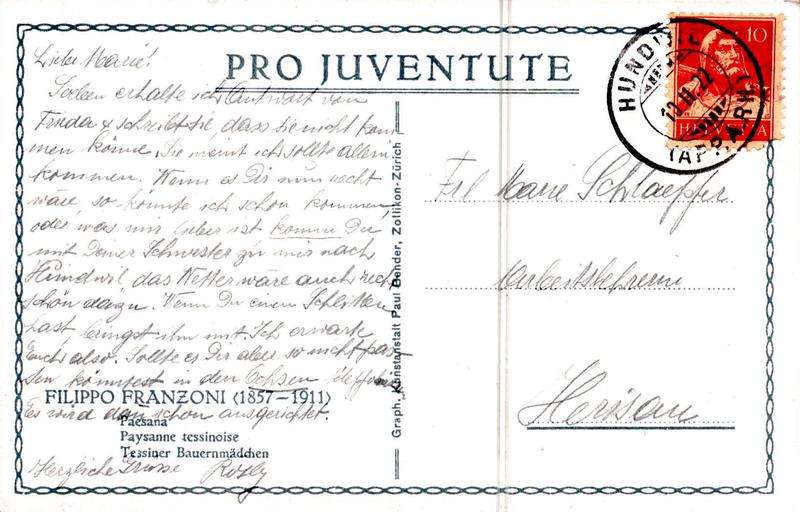 PRO JUVENTUTE
Liebe Marie!
Soeben erhalte ich Antwort von
Frieda & schreibt sie, dass sie nicht kom
men könne. Sie meint ich sollte allein
kommen. Wenn es Dir nun recht
wäre, so könnte ich schon kommen
oder was mir lieber ist komm Du
mit Deiner Schwester zu mir nach
Hundwil, das Wetter wäre auch recht
schön dazu. Wenn Du einen Schlitten
hast, bringst ihn mit. Ich erwarte
Euch also. Sollte es Dir aber so nicht pas-
sen könntest in den Ochsen
Es wird dann schon ausgerichtet.
Herzliche Grüsse Rösly
FILIPPO FRANZONI (1857-1911)
Paesana
Paysanne tessinoise
Tessiner Bauernmädchen
Graph. Kunstanstalt Paul Bender, Zollikon-Zürich
HUNDWIL
10.II.22
(APP. A.RH.)
10
HELVETIA
Frl Marie Schlaepfer
Arbeitslehrerin
Herisau